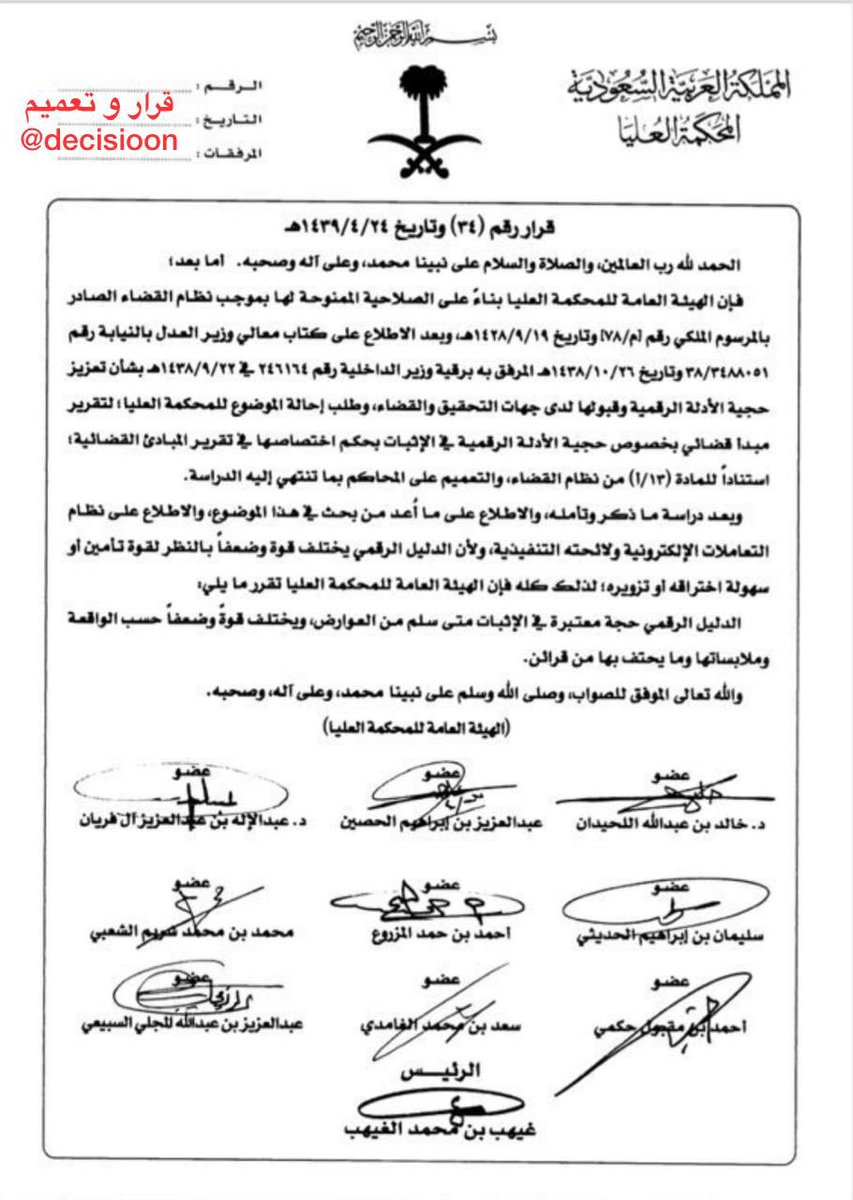 بسم الله الرحمن الرحيم
المملكة العربية السعودية
المحكمة العليا
الـرقـم :
التاريخ :
المرفقات :
قرار و تعميم
@decisioon
قرار رقم (٣٤) وتاريخ ١٤٣٩/٤/٢٤هـ
الحمد لله رب العالمين، والصلاة والسلام على نبينا محمد، وعلى آله وصحبه. أما بعد؛
فإن الهيئة العامة للمحكمة العليا بناءً على الصلاحية الممنوحة لها بموجب نظام القضاء الصادر
بالمرسوم الملكي رقم [م/٧٨] وتاريخ ١٤٢٨/٩/١٩هـ، وبعد الاطلاع على كتاب معالي وزير العدل بالنيابة رقم
٣٨/٣٤٨٨٠٥١ وتاريخ ١٤٣٨/١٠/٢٦هـ المرفق به برقية وزير الداخلية رقم ٢٤٦١٦٤ في ١٤٣٨/٩/٢٢هـ بشأن تعزيز
حجية الأدلة الرقمية وقبولها لدى جهات التحقيق والقضاء، وطلب إحالة الموضوع للمحكمة العليا؛ لتقرير
مبدأ قضائي بخصوص حجية الأدلة الرقمية في الإثبات بحكم اختصاصها في تقرير المبادئ القضائية؛
استناداً للمادة (١٣/أ) من نظام القضاء، والتعميم على المحاكم بما تنتهي إليه الدراسة.
وبعد دراسة ما ذكر وتأمله، والاطلاع على ما أعد من بحث في هذا الموضوع، والاطلاع على نظام
التعاملات الإلكترونية ولائحته التنفيذية، ولأن الدليل الرقمي يختلف قوة وضعفاً بالنظر لقوة تأمين أو
سهولة اختراقه أو تزويره؛ لذلك كله فإن الهيئة العامة للمحكمة العليا تقرر ما يلي:
الدليل الرقمي حجة معتبرة في الإثبات متى سلم من العوارض، ويختلف قوةً وضعفاً حسب الواقعة
وملابساتها وما يحتف بها من قرائن.
والله تعالى الموفق للصواب، وصلى الله وسلم على نبينا محمد، وعلى آله، وصحبه.
(الهيئة العامة للمحكمة العليا)
عضو عضو عضو
د. خالد بن عبدالله اللحيدان عبدالعزيز بن إبراهيم الحصين د. عبدالإله بن عبدالعزيز آل فريان
عضو عضو عضو
سليمان بن إبراهيم الحديثي أحمد بن حمد المزروع محمد بن محمد شريم الشعبي
عضو عضو عضو
أحمد بن مقبول حكمي سعد بن محمد الغامدي عبدالعزيز بن عبدالله المجلي السبيعي
الرئيـــس
غيهب بن محمد الغيهب